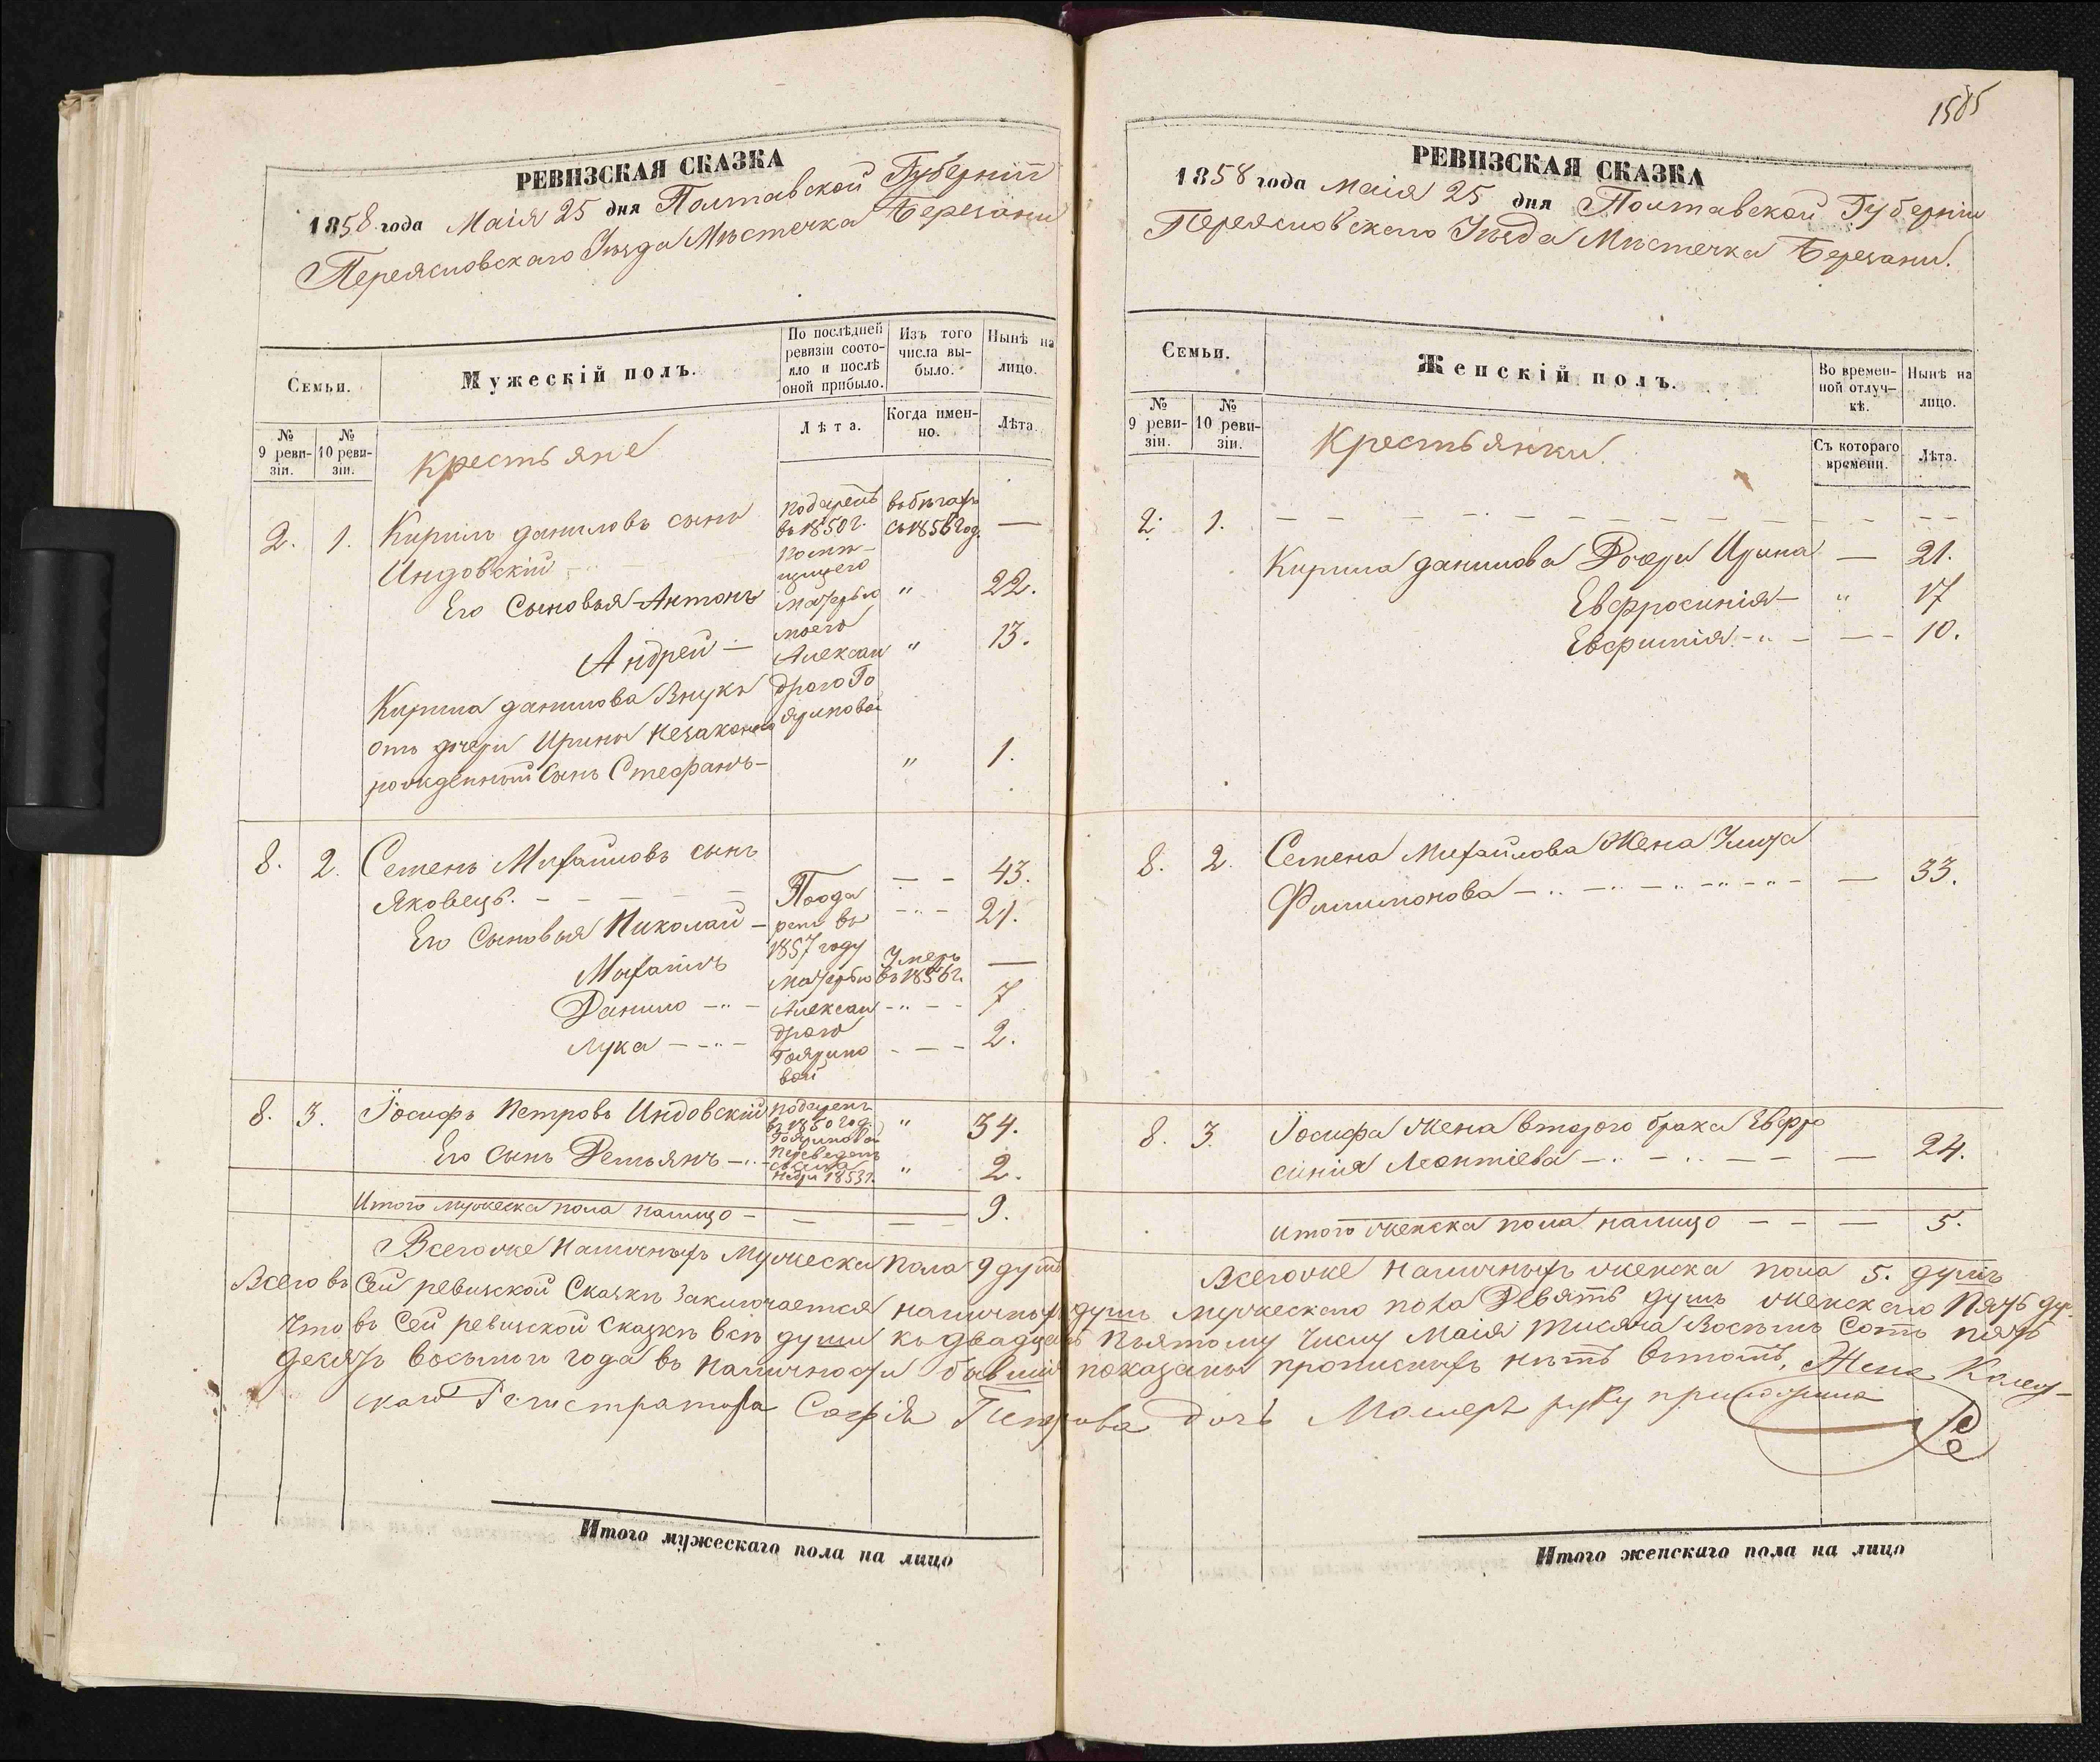 РЕВИЗСКАЯ СКАЗКА
1858 года Маія 25 дня Полтавской Губерніи
Переясловскаго Уѣзда Мѣстечка Березани
Семьи.
Мужескій полъ.
По послѣдней ревизіи состояло и послѣ оной прибыло.
Изъ того числа выбыло.
Нынѣ на лицо.
№ 9 ревизіи.
№ 10 ревизіи.
Лѣта.
Когда именно.
Лѣта.
Крестьяне
2. 1. Кирилъ даниловъ сынъ
Индовскій
подаренъ въ 1850 г.
въ бѣгахъ съ 1856 год. —
Его Сыновья Антонъ " 22.
Андрей — " 13.
матерью моего Алексан
Кирила данилова Внукъ
отъ дочери Ирины незаконно
рожденный Сынъ Стефанъ — " 1.
8. 2. Семенъ Михайловъ сынъ
Яковецъ. — — 43.
Его Сыновья Николай — 21.
Михаилъ Умеръ въ 1856 г. —
Данило — 7
Лука — 2.
1857 году
матерью
Алексан
8. 3. Іосифъ Петровъ Индовскій подаренъ въ 1850 год. " 34.
Его Сынъ Демьянъ — " 2.
Итого мужеска пола налицо — — — 9.
Всегоже Наличныхъ Мужеска пола 9 душъ
Итого мужескаго пола на лицо
1585
РЕВИЗСКАЯ СКАЗКА
1858 года маія 25 дня Полтавской Губерніи
Переясловскаго Уѣзда Мѣстечка Березани.
Семьи.
Женскій полъ.
Во временной отлучкѣ.
Нынѣ на лицо.
№ 9 ревизіи.
№ 10 ревизіи.
Съ котораго времени.
Лѣта.
Крестьянки
2. 1. — — —
Кирила данилова Дочери Ирина — 21.
Евфросинія — " 17
Евфимія — — 10.
8. 2. Семена Михайлова Жена
Филимонова — — 33.
8. 3 Іосифа жена втораго брака Евфро
синія Леонтіева — — 24.
Итого женска пола налицо — — — 5.
Всегоже наличныхъ женска пола 5. душъ
Всего въ Сей ревизской Сказкѣ Заключается наличныхъ душъ мужескаго пола Девять душъ женскаго Пять ду-
Что въ Сей ревизской сказкѣ всѣ души къ двадцать пятому Числу Маія тисяча Восѣмъ Сотъ пять
десятъ восьмого года въ наличности бывшия показаны прописныхъ нѣтъ Жена Колеж-
скаго Регистратора Софія Петрова дочь руку приложила
Итого женскаго пола на лицо